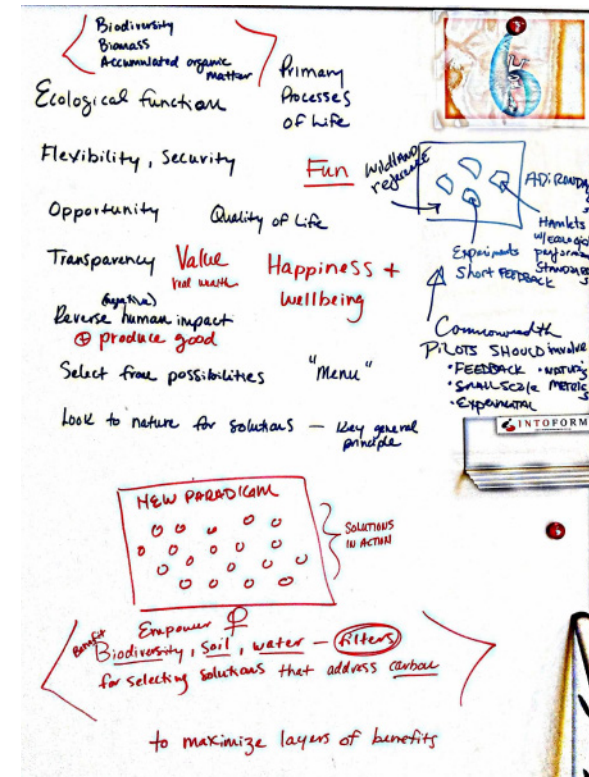 Biodiversity
Biomass
Accumulated organic
matter
Primary
Processes
of Life
Ecological function
Flexibility, Security
Fun
Wildland
reference
Opportunity
Quality of Life
ADIRONDA
Hamlets
w/ecologic
performan
STANDARDS
Experiments
Short FEEDBACK
Transparency
Value
real wealth
Happiness +
wellbeing
(negative)
Reverse human impact
⊕ produce good
Select from possibilities
"Menu"
Look to nature for solutions — Key general
principle
Commonwealth
PILOTS SHOULD involve
• FEEDBACK
• SMALL SCALE
• EXPERIMENTAL
METRICS
INTOFORM
NEW PARADIGM
SOLUTIONS
IN ACTION
Empower
Benefit
Biodiversity, soil, water — filters
for selecting solutions that address carbon
to maximize layers of benefits